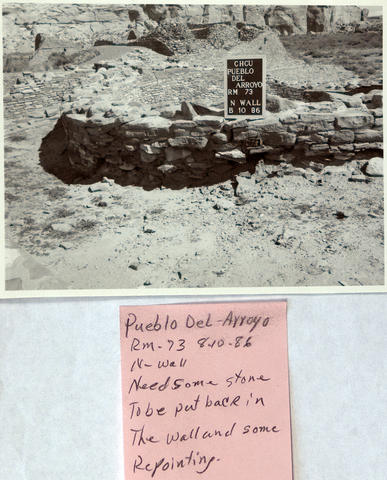 CHCU
PUEBLO
DEL
ARROYO
RM 73
N WALL
B 10 86
Pueblo Del-Arroyo
Rm-73 8-10-86
N-wall
Need some stone
To be put back in
The wall and some
Repointing.